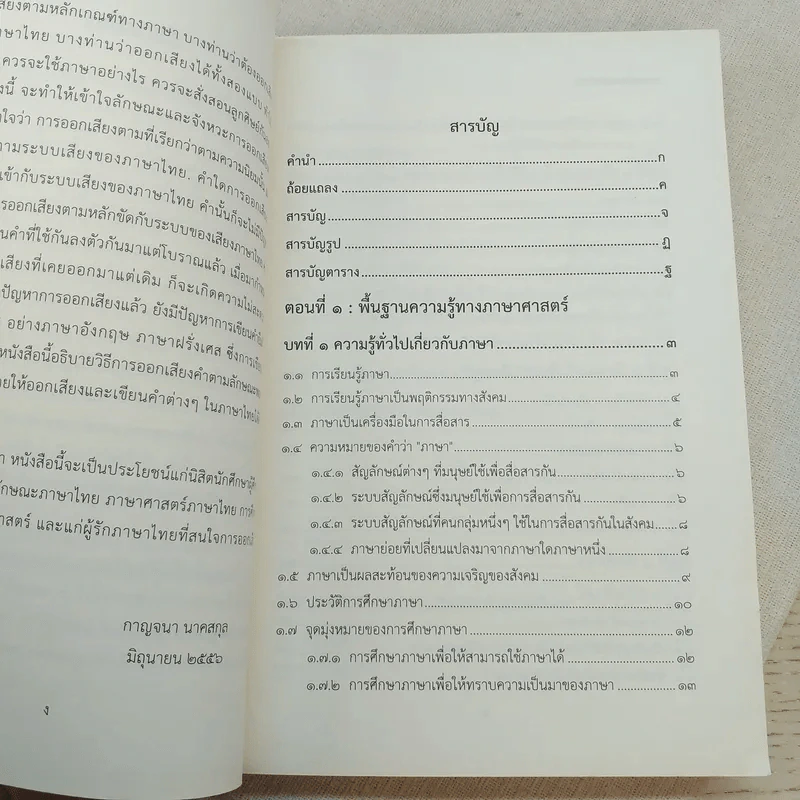 เสียงตามหลักเกณฑ์ทางภาษา บางท่านว่าต้องออก
ภาษาไทย บางท่านว่าออกเสียงได้ทั้งสองแบบ
ควรจะใช้ภาษาอย่างไร ควรจะสั่งสอนลูกศิษย์
นี้ จะทำให้เข้าใจลักษณะและจังหวะการออกเสียง
ใจว่า การออกเสียงตามที่เรียกว่าตามความนิยมนั้น
ตามระบบเสียงของภาษาไทย. คำใดการออกเสียง
เข้ากับระบบเสียงของภาษาไทย คำนั้นก็จะไม่มี
รออกเสียงตามหลักขัดกับระบบของเสียงภาษาไทย
นคำที่ใช้กันลงตัวกันมาแต่โบราณแล้ว เมื่อมา
เสียงที่เคยออกมาแต่เดิม ก็จะเกิดความไม่
ปัญหาการออกเสียงแล้ว ยังมีปัญหาการเขียนคำ
อย่างภาษาอังกฤษ ภาษาฝรั่งเศส ซึ่งการ
หนังสือนี้อธิบายวิธีการออกเสียงคำตามลักษณะ
ยให้ออกเสียงและเขียนคำต่างๆ ในภาษาไทย
หนังสือนี้จะเป็นประโยชน์แก่นิสิตนักศึกษา
ลักษณะภาษาไทย ภาษาศาสตร์ภาษาไทย
าสตร์ และแก่ผู้รักภาษาไทยที่สนใจการออก
กาญจนา นาคสกุล
มิถุนายน ๒๕๕๖
ง
สารบัญ
คำนำ ก
ถ้อยแถลง ค
สารบัญ จ
สารบัญรูป ฏ
สารบัญตาราง ฐ
ตอนที่ ๑ : พื้นฐานความรู้ทางภาษาศาสตร์
บทที่ ๑ ความรู้ทั่วไปเกี่ยวกับภาษา ๓
๑.๑ การเรียนรู้ภาษา ๓
๑.๒ การเรียนรู้ภาษาเป็นพฤติกรรมทางสังคม ๔
๑.๓ ภาษาเป็นเครื่องมือในการสื่อสาร ๕
๑.๔ ความหมายของคำว่า "ภาษา" ๖
๑.๔.๑ สัญลักษณ์ต่างๆ ที่มนุษย์ใช้เพื่อสื่อสารกัน ๖
๑.๔.๒ ระบบสัญลักษณ์ซึ่งมนุษย์ใช้เพื่อการสื่อสารกัน ๖
๑.๔.๓ ระบบสัญลักษณ์ที่คนกลุ่มหนึ่งๆ ใช้ในการสื่อสารกันในสังคม ๘
๑.๔.๔ ภาษาย่อยที่เปลี่ยนแปลงมาจากภาษาใดภาษาหนึ่ง ๘
๑.๕ ภาษาเป็นผลสะท้อนของความเจริญของสังคม ๙
๑.๖ ประวัติการศึกษาภาษา ๑๐
๑.๗ จุดมุ่งหมายของการศึกษาภาษา ๑๒
๑.๗.๑ การศึกษาภาษาเพื่อให้สามารถใช้ภาษาได้ ๑๒
๑.๗.๒ การศึกษาภาษาเพื่อให้ทราบความเป็นมาของภาษา ๑๓